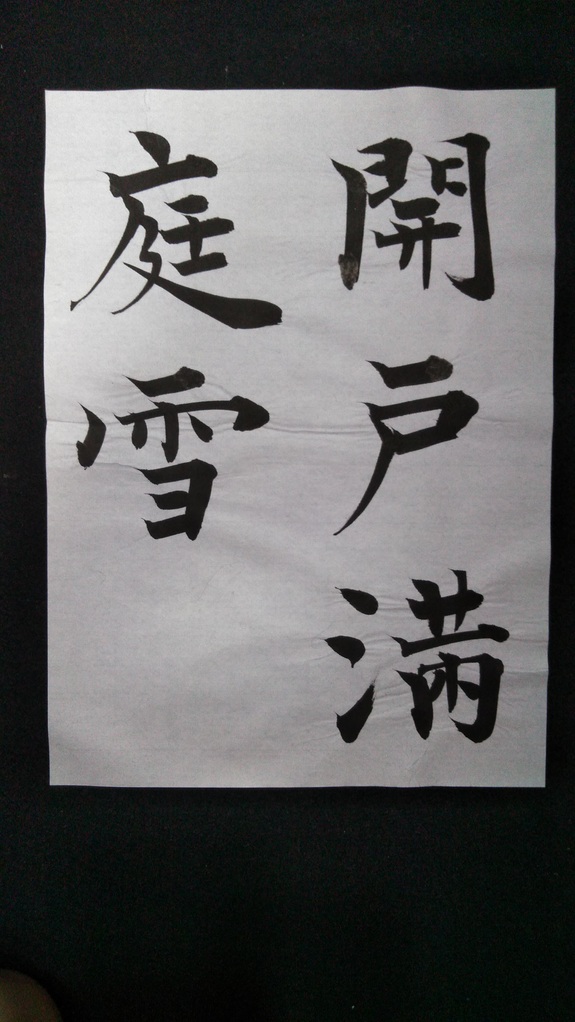 開戸満
庭雪